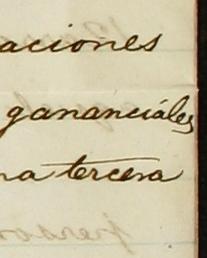 aciones
gananciáles
na tercera